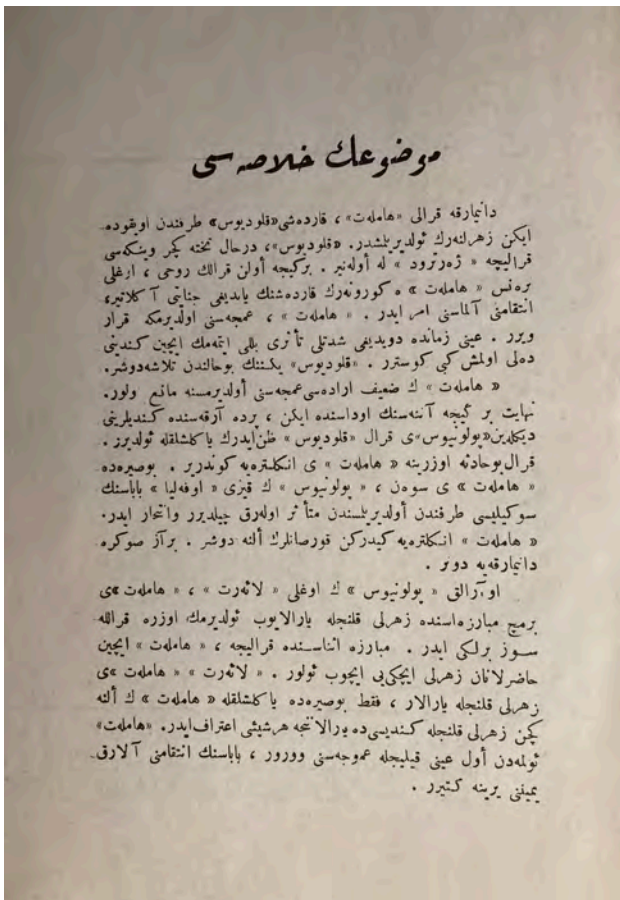 موضوعك خلاصه‌سی
دانیمارقه قرالی «هاملەت» ، قارده‌شی «قلودیوس» طرفندن اویقوده
ایكن زهرلنه‌رك ئولدیریلمشدر. «قلودیوس»، درحال تخته كچر وینكه‌سی
قرالیچه « ژەرترود » له أولەنیر . بركیجه أولن قرالك روحی ، اوغلی
پرەنس « هاملەت » ه كورونه‌رك قارده‌شنك یاپدیغی جنایتی آكلاتیر،
انتقامنی آلماسنی امر ایدر . « هاملەت » ، عمجه‌سنی اولدیرمكه قرار
ویرر . عینی زمانده دویدیغی شدتلی تأثری بللی ایتمه‌مك ایچین كندینی
ده‌لی اولمش كبی كوسترر . «قلودیوس» یكننك بوحالندن تلاشه‌دوشر.
« هاملەت » ك ضعیف اراده‌سی عمجه‌سنی أولدیرمسنه مانع ولور.
نهایت بر كیجه آننه‌سنك اوداسنده ایكن ، پرده آرقه‌سنده كندیلرینی
دیكله‌ین «پولونیوس»ی قرال «قلودیوس » ظن‌ایدرك یاكلشلقله ئولدیرر .
قرال‌بوحادثه اوزرینه « هاملەت » ی انكلتره‌یه كوندریر . بوصیره‌ده
« هاملەت » ی سوەن ، « پولونیوس » ك قیزی « اوفه‌لیا » باباسنك
سوكیلیسی طرفندن أولدیریلمسندن متأثر اوله‌رق چیلدیرر وانتحار ایدر.
« هاملەت » انكلتره‌یه كیدركن قورصانلرك ألنه دوشر . برآز صوكره
دانیمارقه‌یه دونر .
او آرالق « پولونیوس » ك اوغلی « لائەرت » ، « هاملەت »ی
برمج مبارزه‌اسنده زهرلی قلنجله یارالایوب ئولدیرمك اوزره قرالله
سوز برلكی ایدر . مبارزه اثناسنده قرالیجه ، « هاملەت » ایچین
حاضرلانان زهرلی ایچكی‌یی ایچوب ئولور . « لائەرت » « هاملەت »ی
زهرلی قلنجله یارالار ، فقط بوصیره‌ده یاكلشلقله « هاملەت » ك ألنه
كچن زهرلی قلنجله كندیسی‌ده یارالانجه هرشیئی اعتراف‌ایدر. «هاملەت»
ئولمه‌دن أول عینی قیلیجله عموجه‌سنی وورور ، باباسنك انتقامنی آلارق
یمیننی یرینه كتیرر .